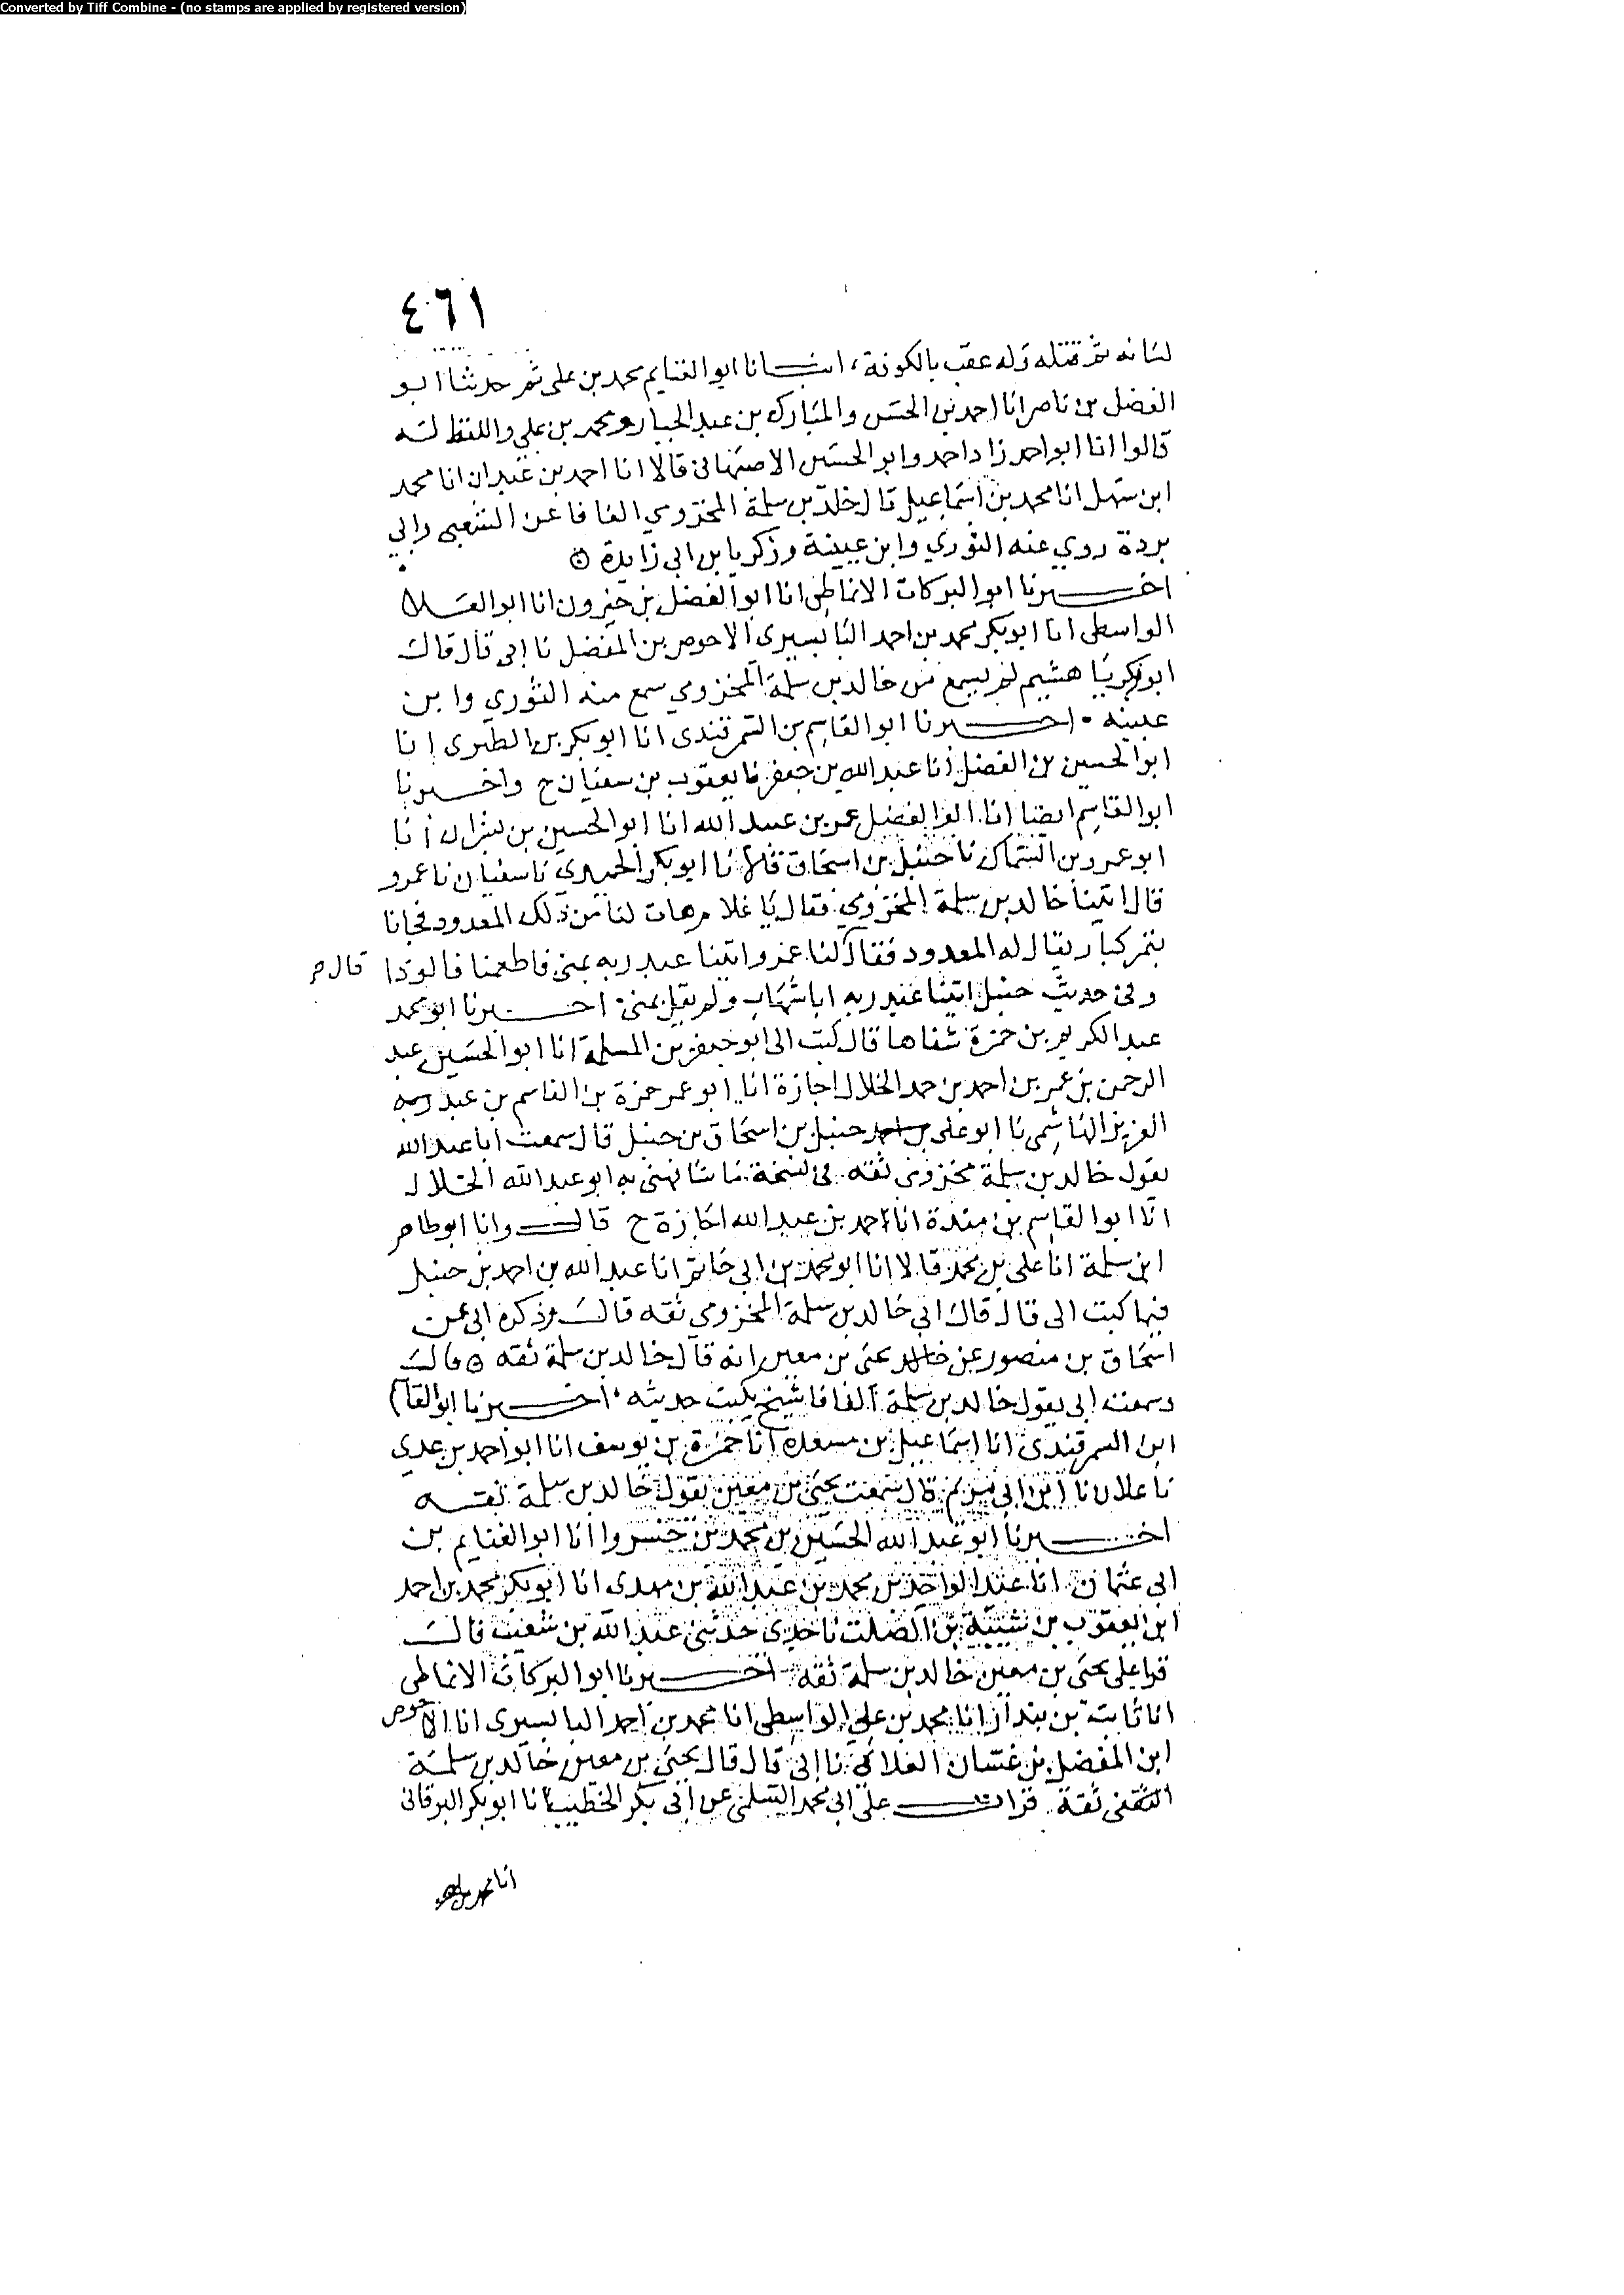 Converted by Tiff Combine - (no stamps are applied by registered version)
٤٦١
لسانه ثم قتله وله عقب بالكوفة، انبانا ابو الغنايم محمد بن على ثم حدثنا ابو
الفضل بن ناصر انا احمد بن الحسن والمبارك بن عبد الجبار ومحمد بن علي واللفظ له
قالوا انا ابو احمد زاد احمد وابو الحسين الاصبهانى قالا انا احمد بن عبدان انا محمد
ابن سهل انا محمد بن اسماعيل قال خالد بن سلمة المخزومي الفافا عن الشعبى وابي
بردة روي عنه الثوري وابن عيينة وزكريا بن ابى زايدة
اخبرنا ابو البركات الانماطى انا ابو الفضل بن خيرون انا ابو العلا
الواسطى انا ابو بكر محمد بن احمد البابسيرى الاحوص بن المفضل نا ابى قال قال
ابو زكريا هشيم لم يسمع من خالد بن سلمة المخزومي سمع منه الثوري وابن
عيينه اخبرنا ابو القاسم بن السمرقندى انا ابو بكر بن الطبرى انا
ابو الحسين بن الفضل انا عبد الله بن جعفر نا يعقوب بن سفيان ح واخبرنا
ابو القاسم ايضا انا ابو الفضل عمر بن عبيد الله انا ابو الحسين بن بشران انا
ابو عمرو بن السماك نا حنبل بن اسحاق قالا نا ابو بكر الحميدي نا سفيان نا عمرو
قال اتينا خالد بن سلمة المخزومي فقال يا غلام هات لنا من ذلك المعدود فجانا
بتمر كبار يقال له المعدود فقال لنا عمرو اتينا عبد ربه بمنى فاطعمنا فالوذا
قال م
وفى حديث حنبل اتينا عبد ربه ابا شهاب ولم يقل بمنى اخبرنا ابو محمد
عبد الكريم بن حمزة شفاها قال كتب الى ابو جعفر بن المسلمة انا ابو الحسين عبد
الرحمن بن عمر بن احمد بن حمد الخلال اجازة انا ابو عمر حمزة بن القاسم بن عبد
العزيز الهاشمى نا ابو على حنبل بن اسحاق بن حنبل قال سمعت ابا عبد الله
يقول خالد بن سلمة مخزومى ثقه فى نسخة ما شافهنى به ابو عبد الله الخلال
انا ابو القاسم بن مندة انا احمد بن عبد الله اجازة ح قال وانا ابو طاهر
ابن سلمة انا على بن محمد قالا انا ابو محمد بن ابى حاتم انا عبد الله بن احمد بن حنبل
فيما كتب الى قال قال ابى خالد بن سلمة المخزومى ثقه قال وذكره ابى عن
اسحاق بن منصور عن يحيى بن معين انه قال خالد بن سلمة ثقه قال
وسمعت ابى يقول خالد بن سلمة الفافا شيخ يكتب حديثه اخبرنا ابو القاسم
ابن السمرقندى انا اسماعيل بن مسعدة انا حمزة بن يوسف انا ابو احمد بن عدي
نا علان نا ابن ابى مريم قال سمعت يحيى بن معين يقول خالد بن سلمة ثقه
اخبرنا ابو عبد الله الحسين بن محمد بن خسروا انا ابو الغنايم بن
ابى عثمان انا عبد الواحد بن محمد بن عبد الله بن مهدى انا ابو بكر محمد بن احمد
ابن يعقوب بن شيبة بن الصلت نا جدى حدثنى عبد الله بن شعيب قال
قرا على يحيى بن معين خالد بن سلمة ثقه اخبرنا ابو البركات الانماطى
انا ثابت بن بندار انا محمد بن علي الواسطى انا محمد بن احمد البابسيرى انا الاحوص
ابن المفضل بن غسان الغلابى نا ابى قال قال يحيى بن معين خالد بن سلمة
الثقفى ثقة قرات على ابى محمد السلمى عن ابى بكر الخطيب انا ابو بكر البرقانى
انا محمد بن